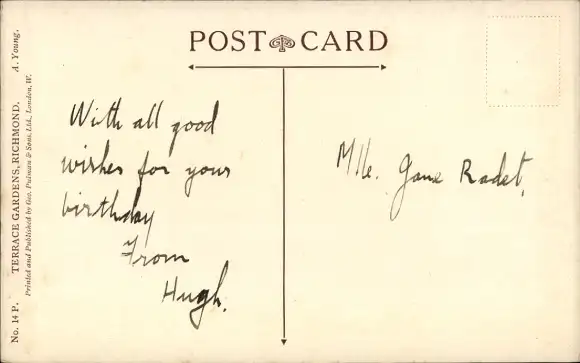 POST CARD
With all good
wishes for your
birthday
From
Hugh.
Mlle. Jane Radet,
No. 14 P. TERRACE GARDENS, RICHMOND. A. Young.
Printed and Published by Geo. Pulman & Sons, Ltd., London, W.